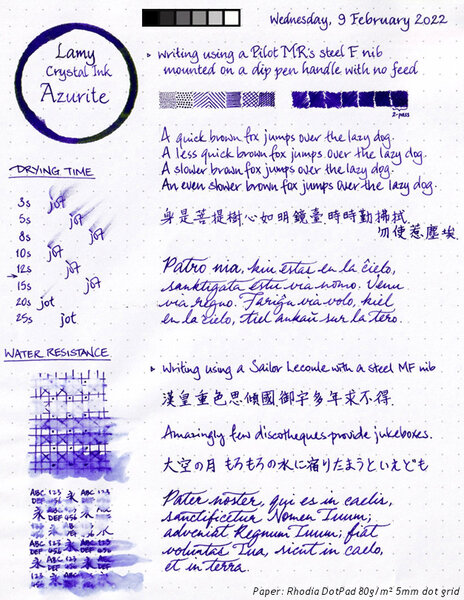 Wednesday, 9 February 2022
Lamy
Crystal Ink
Azurite
writing using a Pilot MR's steel F nib
mounted on a dip pen handle with no feed
2-pass
A quick brown fox jumps over the lazy dog.
A less quick brown fox jumps over the lazy dog.
A slower brown fox jumps over the lazy dog.
An even slower brown fox jumps over the lazy dog.
DRYING TIME
3s jot
5s jot
8s jot
10s jot
12s jot
15s jot
20s jot
25s jot
身是菩提樹心如明鏡臺時時勤拂拭
勿使惹塵埃
Patro nia, kiu estas en la ĉielo,
sanktigata estu via nomo. Venu
via regno. Fariĝu via volo, kiel
en la ĉielo, tiel ankaŭ sur la tero.
WATER RESISTANCE
Writing using a Sailor Lecoule with a steel MF nib
漢皇重色思傾國御宇多年求不得
Amazingly few discotheques provide jukeboxes.
大空の月もろもろの水に宿りたまうといえども
ABC 123 永 ABC 123
DEF 456 DEF 456
Pater noster, qui es in caelis,
sanctificetur Nomen Tuum;
adveniat Regnum Tuum; fiat
voluntas Tua, sicut in caelo,
et in terra.
Paper: Rhodia DotPad 80g/m² 5mm dot grid